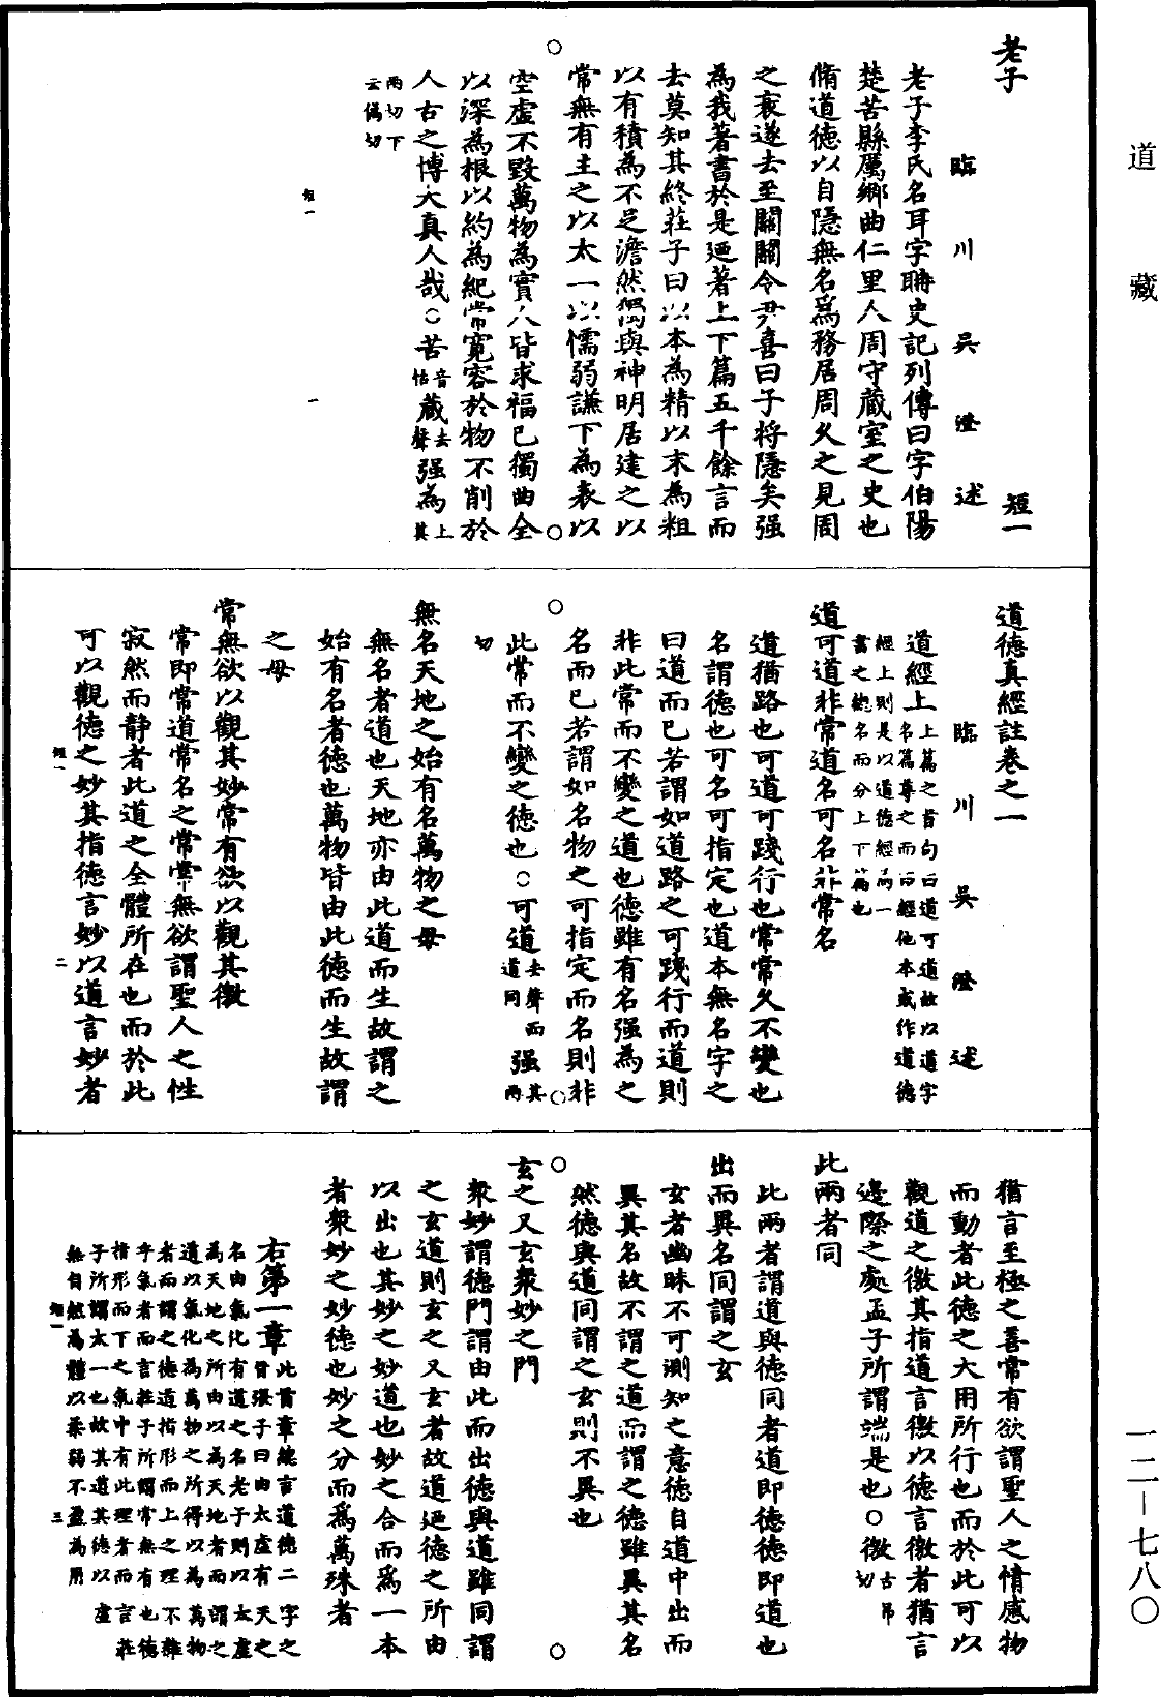 道藏
老子
短一
臨川吳澄述
老子李氏名耳字聃史記列傳曰字伯陽
楚苦縣厲鄉曲仁里人周守藏室之史也
脩道德以自隱無名爲務居周久之見周
之衰遂去至關關令尹喜曰子將隱矣强
為我著書於是廼著上下篇五千餘言而
去莫知其終莊子曰以本為精以末為粗
以有積為不足澹然獨與神明居建之以
常無有主之以太一以儒弱謙下為表以
空虛不毀萬物為實人皆求福己獨曲全
以深為根以約為紀常寬容於物不削於
人古之博大真人哉○苦音怙藏去聲强為上其
兩切下云僞切
短一
一
道德真經註卷之一
臨川吳澄述
道經上上篇之首句曰道可道故以道字
名篇尊之而曰經他本或作道德
經上則是以道德經為一
書之總名而分上下篇也
道可道非常道名可名非常名
道猶路也可道可踐行也常常久不變也
名謂德也可名可指定也道本無名字之
曰道而已若謂如道路之可踐行而道則
非此常而不變之道也德雖有名强為之
名而已若謂如名物之可指定而名則非
此常而不變之德也○可道去聲而道同强其兩
切
無名天地之始有名萬物之母
無名者道也天地亦由此道而生故謂之
始有名者德也萬物皆由此德而生故謂
之母
常無欲以觀其妙常有欲以觀其徼
常即常道常名之常常無欲謂聖人之性
寂然而静者此道之全體所在也而於此
可以觀德之妙其指德言妙以道言妙者
短一
二
猶言至極之善常有欲謂聖人之情感物
而動者此德之大用所行也而於此可以
觀道之徼其指道言徼以德言徼者猶言
邊際之處孟子所謂端是也○徼古弔切
此兩者同
此兩者謂道與德同者道即德德即道也
出而異名同謂之玄
玄者幽昧不可測知之意德自道中出而
異其名故不謂之道而謂之德雖異其名
然德與道同謂之玄則不異也
玄之又玄衆妙之門
衆妙謂德門謂由此而出德與道雖同謂
之玄道則玄之又玄者故道廼德之所由
以出也其妙之妙道也妙之合而爲一本
者衆妙之妙德也妙之分而爲萬殊者
右第一章此首章總言道德二字之
旨張子曰由太虛有天之
名由氣化有道之名老子則以太虛
為天地之所由以為天地者而謂之
道以氣化為萬物之所得以為萬物
者而謂之德道指形而上之理不雜
乎氣者而言莊子所謂常無有也德
指形而下之氣中有此理者而言莊
子所謂太一也故其道其德以虛
無自然為體以柔弱不盈為用
短一
三
一二—七八〇